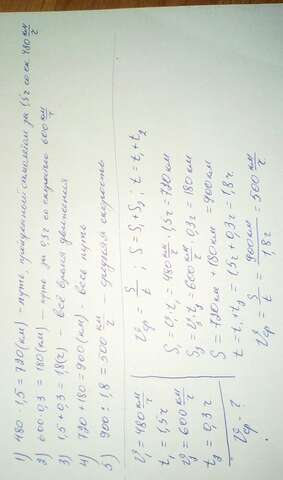 1) 480 · 1,5 = 720 (км) - путь, пройденный самолётом за 1,5 ч со ск. 480 км/ч
2) 600 · 0,3 = 180 (км) - путь за 0,3 ч со скоростью 600 км/ч
3) 1,5 + 0,3 = 1,8 (ч) - всё время движения
4) 720 + 180 = 900 (км) - весь путь
5) 900 : 1,8 = 500 км/ч - средняя скорость
V₁ = 480 км/ч
t₁ = 1,5 ч
V₂ = 600 км/ч
t₂ = 0,3 ч
Vср - ?
Vср = S/t ; S = S₁ + S₂ ; t = t₁ + t₂
S₁ = V₁ · t₁ = 480 км/ч · 1,5 ч = 720 км
S₂ = V₂ · t₂ = 600 км/ч · 0,3 ч = 180 км
S = 720 км + 180 км = 900 км
t = t₁ + t₂ = 1,5 ч + 0,3 ч = 1,8 ч
Vср = S/t = 900 км/1,8 ч = 500 км/ч